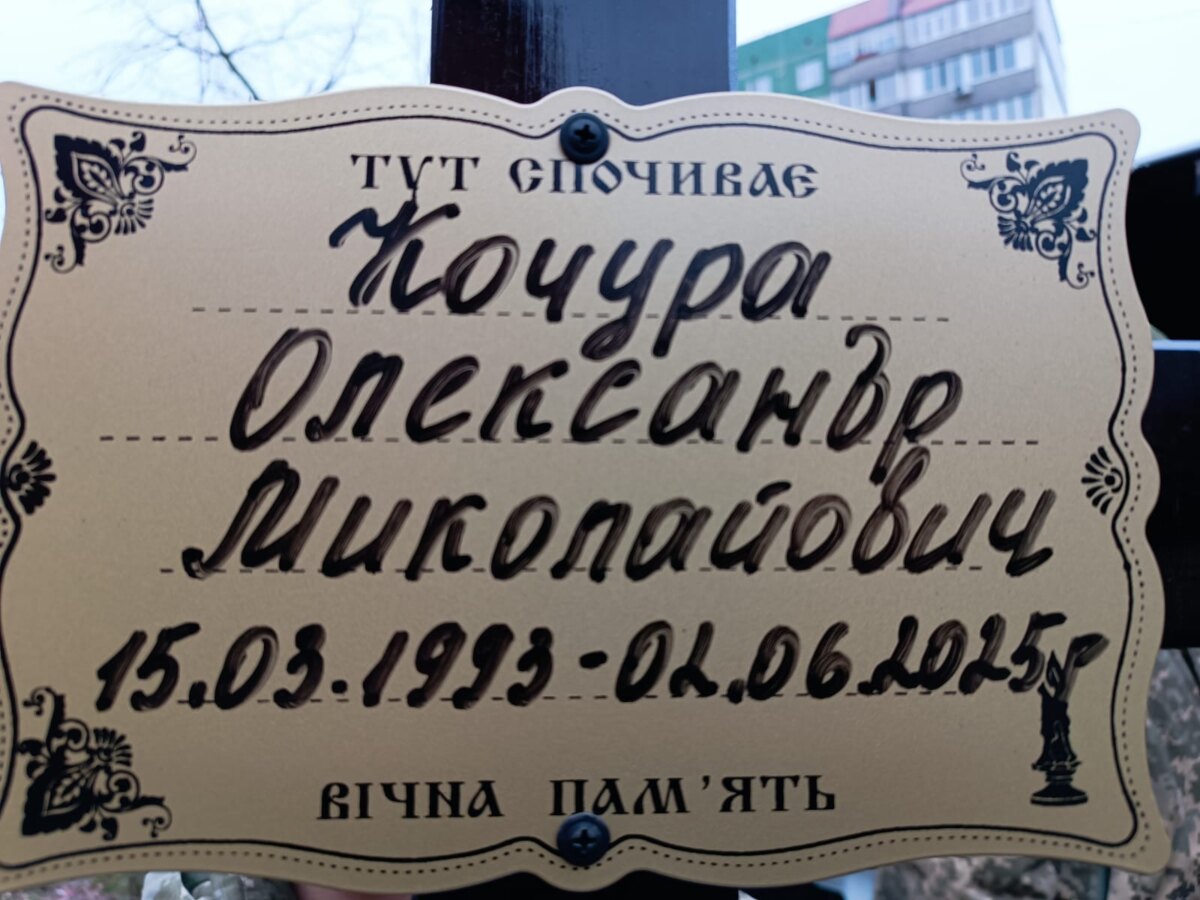 ТУТ СПОЧИВАЄ
Кочура
Олександр
Миколайович
15.03.1993-02.06.2025р
ВІЧНА ПАМ'ЯТЬ